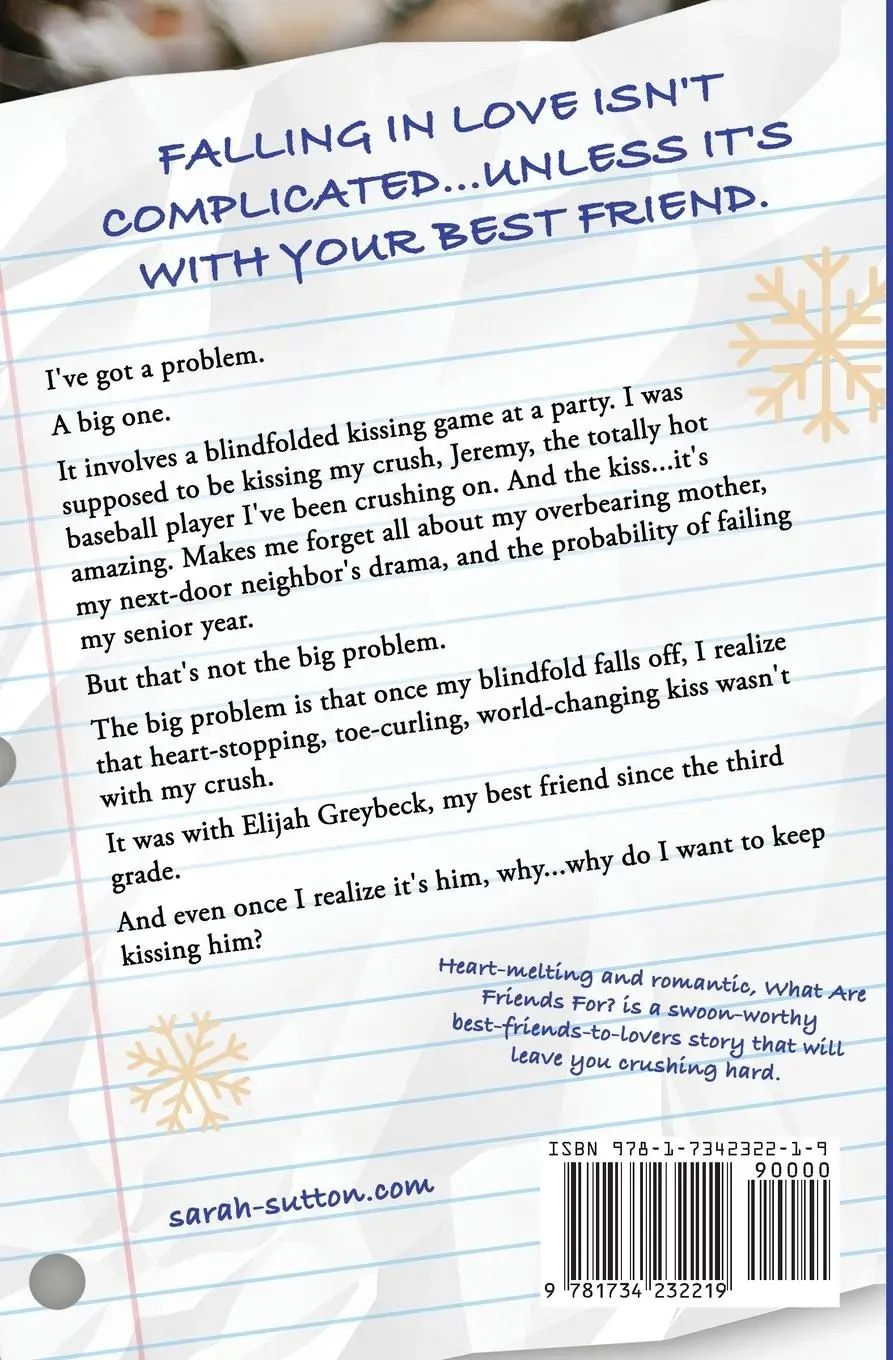 FALLING IN LOVE ISN'T
COMPLICATED...UNLESS IT'S
WITH YOUR BEST FRIEND.
I've got a problem.
A big one.
It involves a blindfolded kissing game at a party. I was
supposed to be kissing my crush, Jeremy, the totally hot
baseball player I've been crushing on. And the kiss...it's
amazing. Makes me forget all about my overbearing mother,
my next-door neighbor's drama, and the probability of failing
my senior year.
But that's not the big problem.
The big problem is that once my blindfold falls off, I realize
that heart-stopping, toe-curling, world-changing kiss wasn't
with my crush.
It was with Elijah Greybeck, my best friend since the third
grade.
And even once I realize it's him, why...why do I want to keep
kissing him?
Heart-melting and romantic, What Are
Friends For? is a swoon-worthy
best-friends-to-lovers story that will
leave you crushing hard.
sarah-sutton.com
ISBN 978-1-7342322-1-9
90000
9 781734 232219